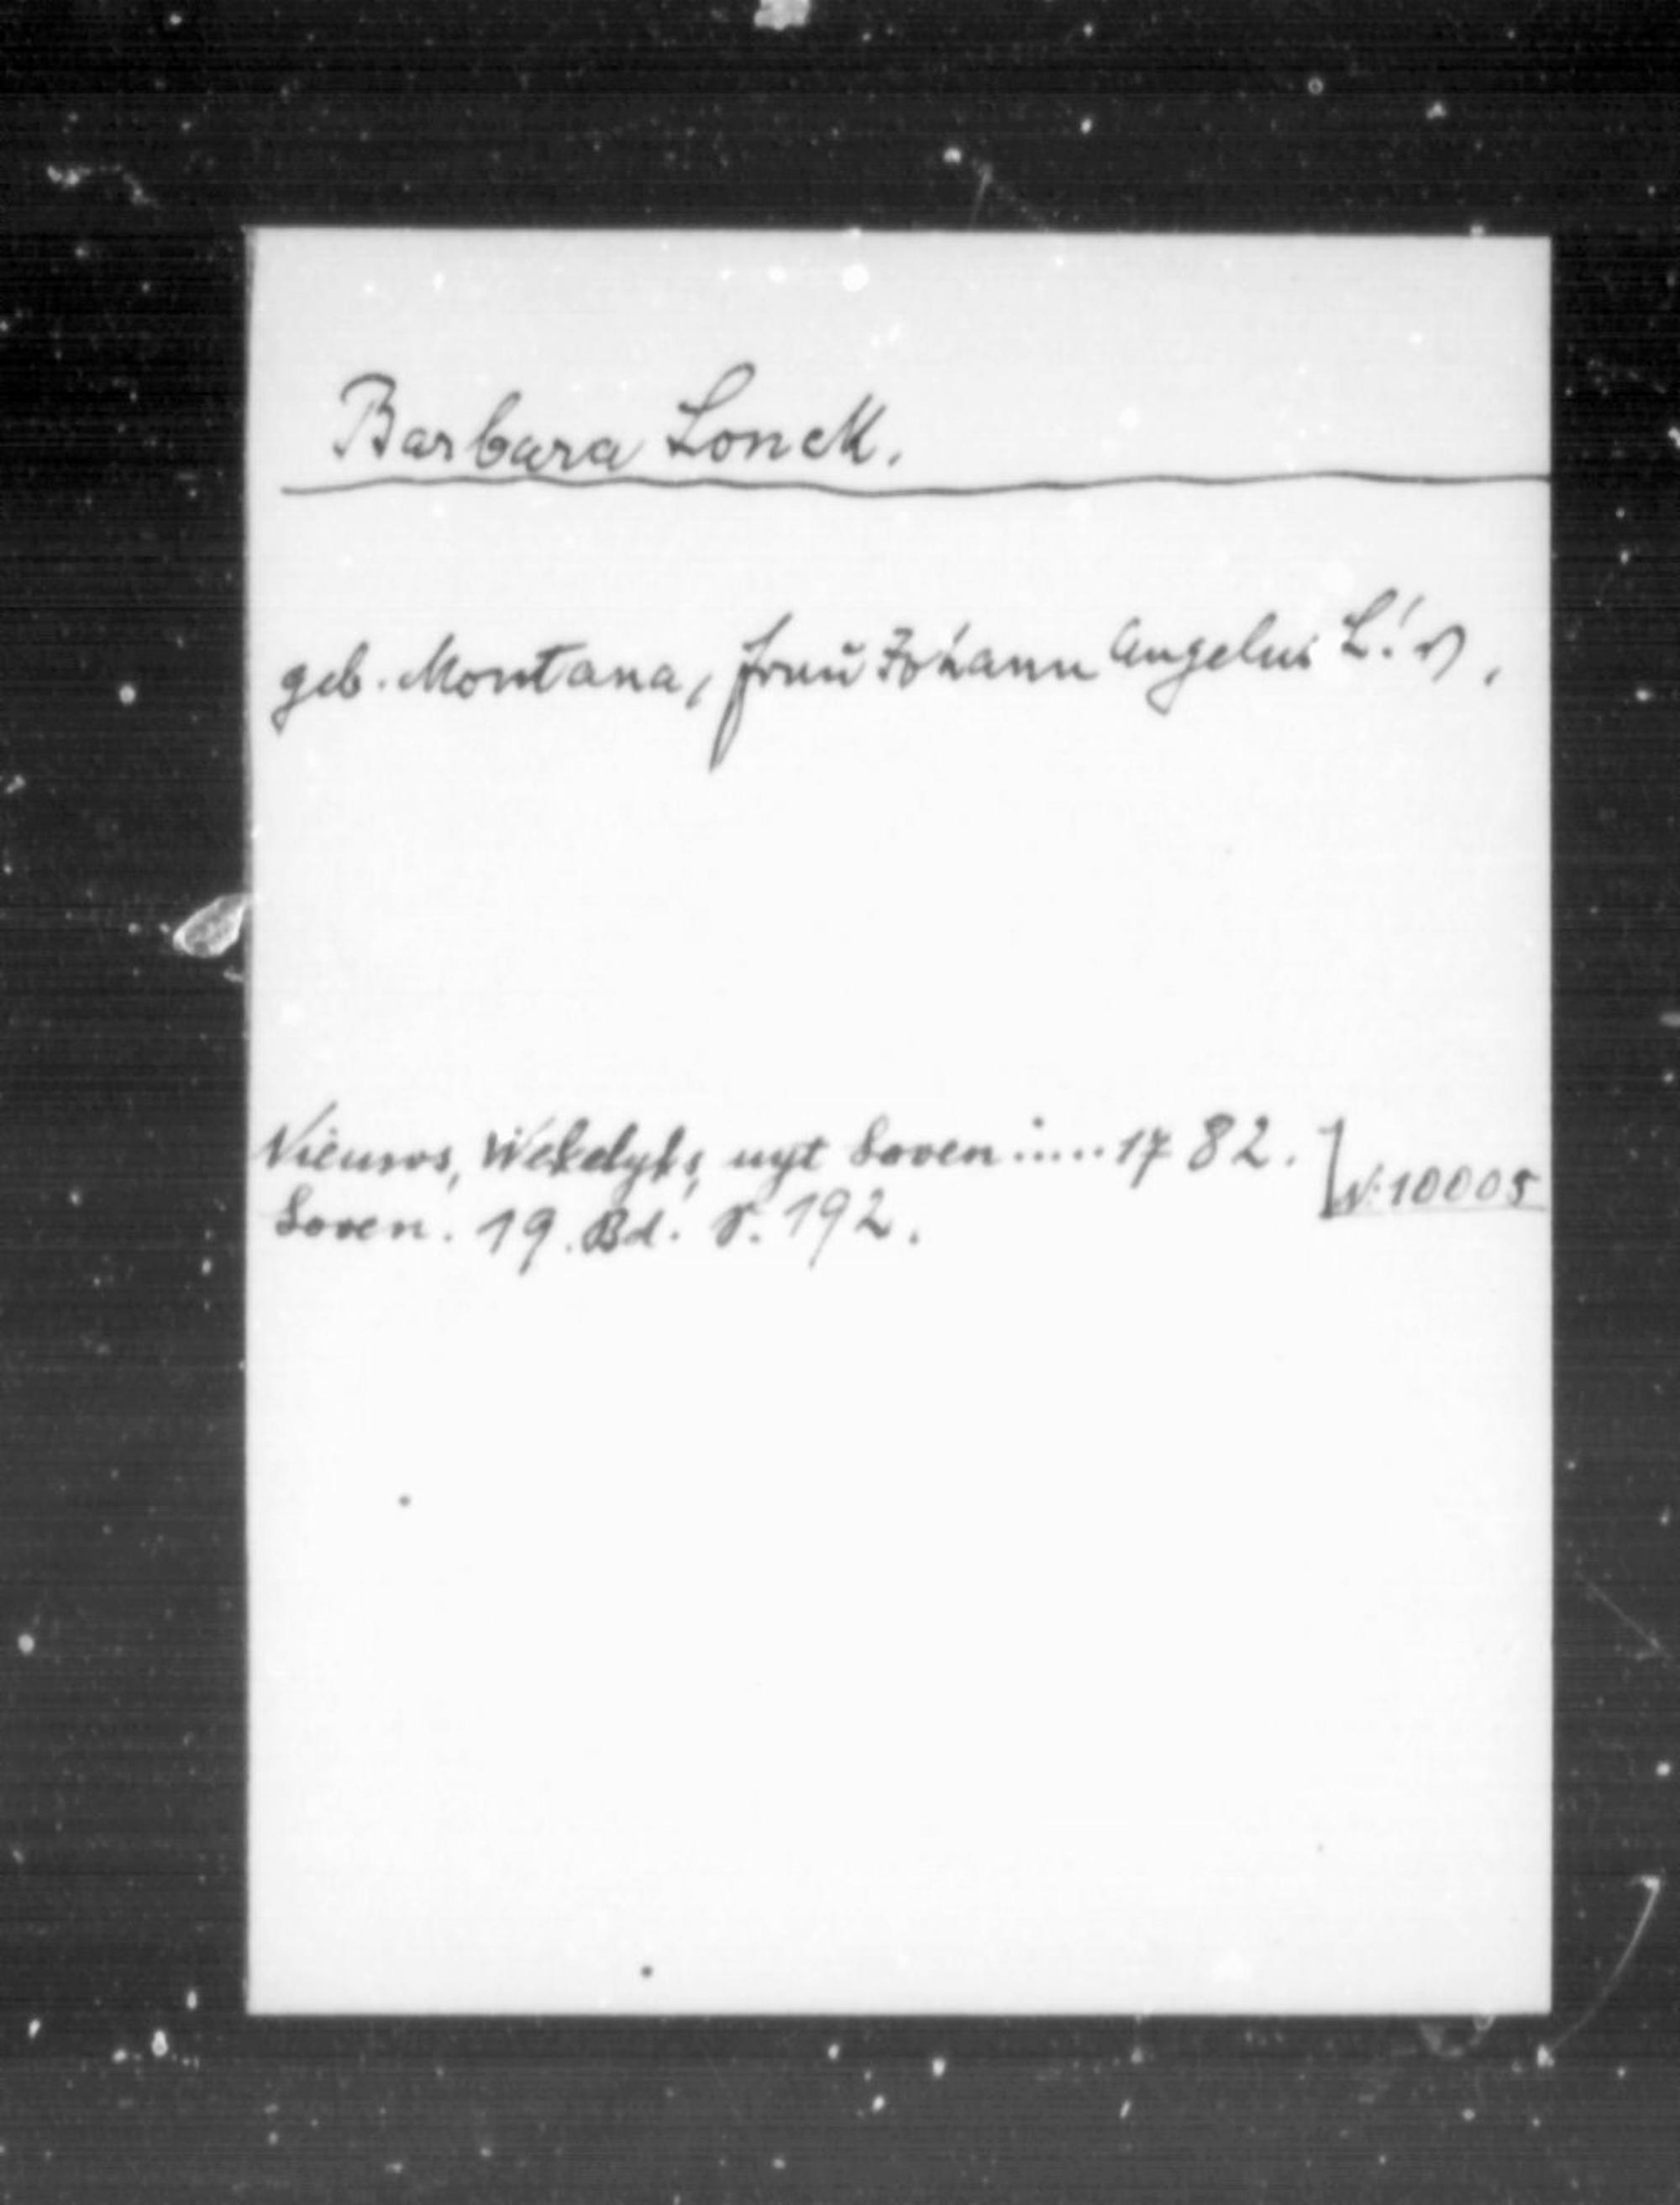 Barbara Lonck.
geb. Montana, Frau Johann Angelus L!s,
Nieuws, Wekelyks, uyt Loven ..... 1782. N. 10005
Loven. 19. Bd. S. 192.